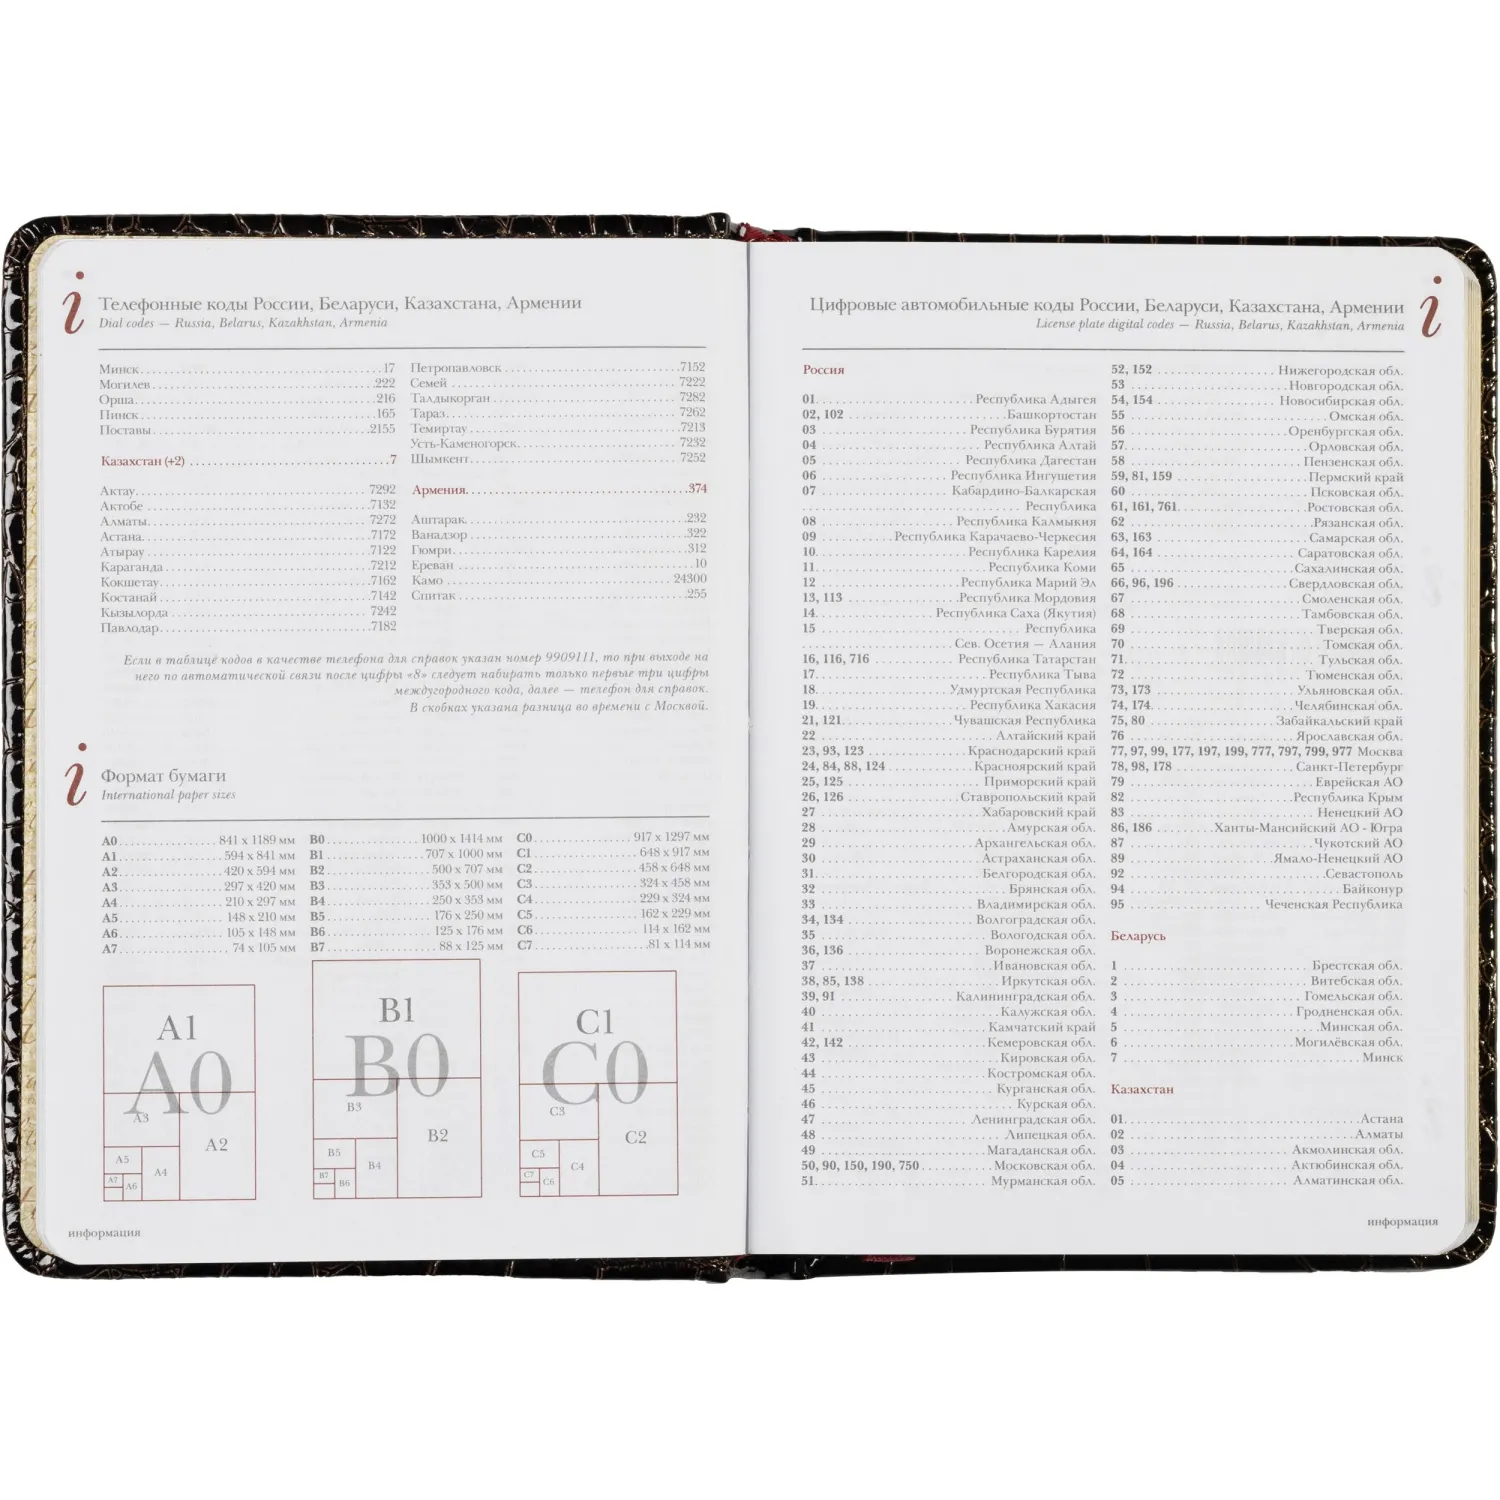 i
Телефонные коды России, Беларуси, Казахстана, Армении
Dial codes — Russia, Belarus, Kazakhstan, Armenia
Минск 17
Могилев 222
Орша 216
Пинск 165
Поставы 2155
Казахстан (+2) 7
Актау 7292
Актобе 7132
Алматы 7272
Астана 7172
Атырау 7122
Караганда 7212
Кокшетау 7162
Костанай 7142
Кызылорда 7242
Павлодар 7182
Петропавловск 7152
Семей 7222
Талдыкорган 7282
Тараз 7262
Темиртау 7213
Усть-Каменогорск 7232
Шымкент 7252
Армения 374
Аштарак 232
Ванадзор 322
Гюмри 312
Ереван 10
Камо 24300
Спитак 255
Если в таблице кодов в качестве телефона для справок указан номер 9909111, то при выходе на
него по автоматической связи после цифры «8» следует набирать только первые три цифры
междугородного кода, далее — телефон для справок.
В скобках указана разница во времени с Москвой.
i
Формат бумаги
International paper sizes
A0 841 x 1189 мм
A1 594 x 841 мм
A2 420 x 594 мм
A3 297 x 420 мм
A4 210 x 297 мм
A5 148 x 210 мм
A6 105 x 148 мм
A7 74 x 105 мм
B0 1000 x 1414 мм
B1 707 x 1000 мм
B2 500 x 707 мм
B3 353 x 500 мм
B4 250 x 353 мм
B5 176 x 250 мм
B6 125 x 176 мм
B7 88 x 125 мм
C0 917 x 1297 мм
C1 648 x 917 мм
C2 458 x 648 мм
C3 324 x 458 мм
C4 229 x 324 мм
C5 162 x 229 мм
C6 114 x 162 мм
C7 81 x 114 мм
A1
A0
A3
A2
A5
A4
A7
A6
B1
B0
B3
B2
B5
B4
B7
B6
C1
C0
C3
C2
C5
C4
C7
C6
информация
i
Цифровые автомобильные коды России, Беларуси, Казахстана, Армении
License plate digital codes — Russia, Belarus, Kazakhstan, Armenia
Россия
01 Республика Адыгея
02, 102 Башкортостан
03 Республика Бурятия
04 Республика Алтай
05 Республика Дагестан
06 Республика Ингушетия
07 Кабардино-Балкарская
Республика
08 Республика Калмыкия
09 Республика Карачаево-Черкесия
10 Республика Карелия
11 Республика Коми
12 Республика Марий Эл
13, 113 Республика Мордовия
14 Республика Саха (Якутия)
15 Республика
Сев. Осетия — Алания
16, 116, 716 Республика Татарстан
17 Республика Тыва
18 Удмуртская Республика
19 Республика Хакасия
21, 121 Чувашская Республика
22 Алтайский край
23, 93, 123 Краснодарский край
24, 84, 88, 124 Красноярский край
25, 125 Приморский край
26, 126 Ставропольский край
27 Хабаровский край
28 Амурская обл.
29 Архангельская обл.
30 Астраханская обл.
31 Белгородская обл.
32 Брянская обл.
33 Владимирская обл.
34, 134 Волгоградская обл.
35 Вологодская обл.
36, 136 Воронежская обл.
37 Ивановская обл.
38, 85, 138 Иркутская обл.
39, 91 Калининградская обл.
40 Калужская обл.
41 Камчатский край
42, 142 Кемеровская обл.
43 Кировская обл.
44 Костромская обл.
45 Курганская обл.
46 Курская обл.
47 Ленинградская обл.
48 Липецкая обл.
49 Магаданская обл.
50, 90, 150, 190, 750 Московская обл.
51 Мурманская обл.
52, 152 Нижегородская обл.
53 Новгородская обл.
54, 154 Новосибирская обл.
55 Омская обл.
56 Оренбургская обл.
57 Орловская обл.
58 Пензенская обл.
59, 81, 159 Пермский край
60 Псковская обл.
61, 161, 761 Ростовская обл.
62 Рязанская обл.
63, 163 Самарская обл.
64, 164 Саратовская обл.
65 Сахалинская обл.
66, 96, 196 Свердловская обл.
67 Смоленская обл.
68 Тамбовская обл.
69 Тверская обл.
70 Томская обл.
71 Тульская обл.
72 Тюменская обл.
73, 173 Ульяновская обл.
74, 174 Челябинская обл.
75, 80 Забайкальский край
76 Ярославская обл.
77, 97, 99, 177, 197, 199, 777, 797, 799, 977 Москва
78, 98, 178 Санкт-Петербург
79 Еврейская АО
82 Республика Крым
83 Ненецкий АО
86, 186 Ханты-Мансийский АО - Югра
87 Чукотский АО
89 Ямало-Ненецкий АО
92 Севастополь
94 Байконур
95 Чеченская Республика
Беларусь
1 Брестская обл.
2 Витебская обл.
3 Гомельская обл.
4 Гродненская обл.
5 Минская обл.
6 Могилёвская обл.
7 Минск
Казахстан
01 Астана
02 Алматы
03 Акмолинская обл.
04 Актюбинская обл.
05 Алматинская обл.
информация